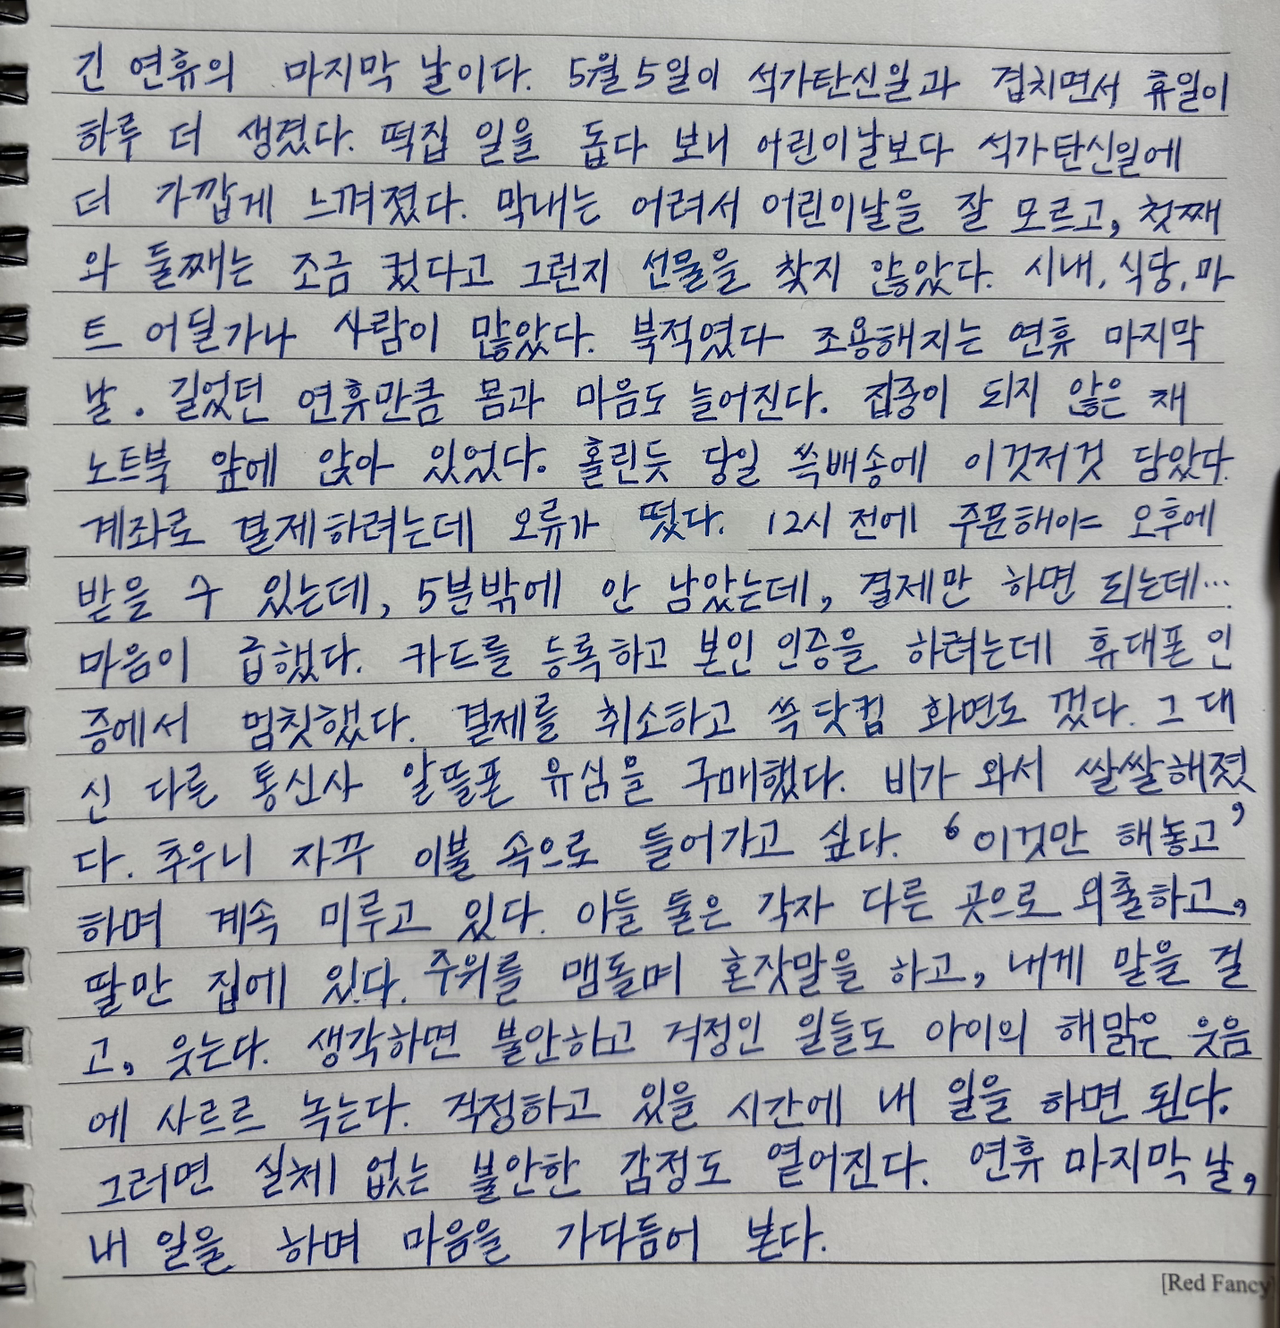 긴 연휴의 마지막 날이다. 5월 5일이 석가탄신일과 겹치면서 휴일이
하루 더 생겼다. 떡집 일을 돕다 보니 어린이날보다 석가탄신일에
더 가깝게 느껴졌다. 막내는 어려서 어린이날을 잘 모르고, 첫째
와 둘째는 조금 컸다고 그런지 선물을 찾지 않았다. 시내, 식당, 마
트 어딜가나 사람이 많았다. 북적였다 조용해지는 연휴 마지막
날. 길었던 연휴만큼 몸과 마음도 늘어진다. 집중이 되지 않은 채
노트북 앞에 앉아 있었다. 홀린듯 당일 쓱배송에 이것저것 담았다.
계좌로 결제하려는데 오류가 떴다. 12시 전에 주문해야 오후에
받을 수 있는데, 5분밖에 안 남았는데, 결제만 하면 되는데…
마음이 급했다. 카드를 등록하고 본인 인증을 하려는데 휴대폰 인
증에서 멈칫했다. 결제를 취소하고 쓱닷컴 화면도 껐다. 그 대
신 다른 통신사 알뜰폰 유심을 구매했다. 비가 와서 쌀쌀해졌
다. 추우니 자꾸 이불 속으로 들어가고 싶다. ‘이것만 해놓고’
하며 계속 미루고 있다. 아들 둘은 각자 다른 곳으로 외출하고,
딸만 집에 있다. 주위를 맴돌며 혼잣말을 하고, 내게 말을 걸
고, 웃는다. 생각하면 불안하고 걱정인 일들도 아이의 해맑은 웃음
에 사르르 녹는다. 걱정하고 있을 시간에 내 일을 하면 된다.
그러면 실체 없는 불안한 감정도 옅어진다. 연휴 마지막 날,
내 일을 하며 마음을 가다듬어 본다.
[Red Fancy